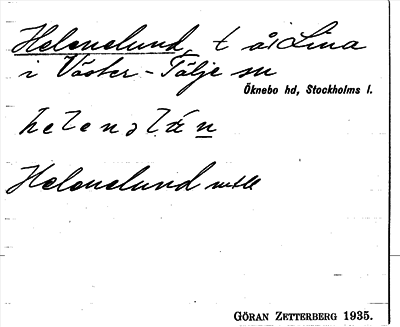 Helenelund, t å Lina
i Väster-Tälje sn
Öknebo hd, Stockholms l.
Helenelund
GÖRAN ZETTERBERG 1935.